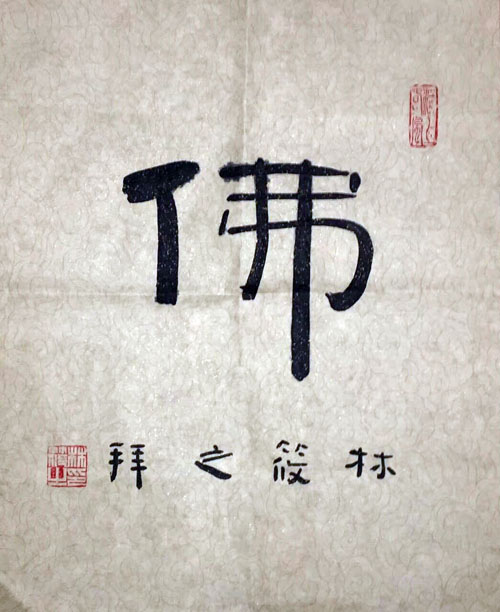 佛
林筱之拜